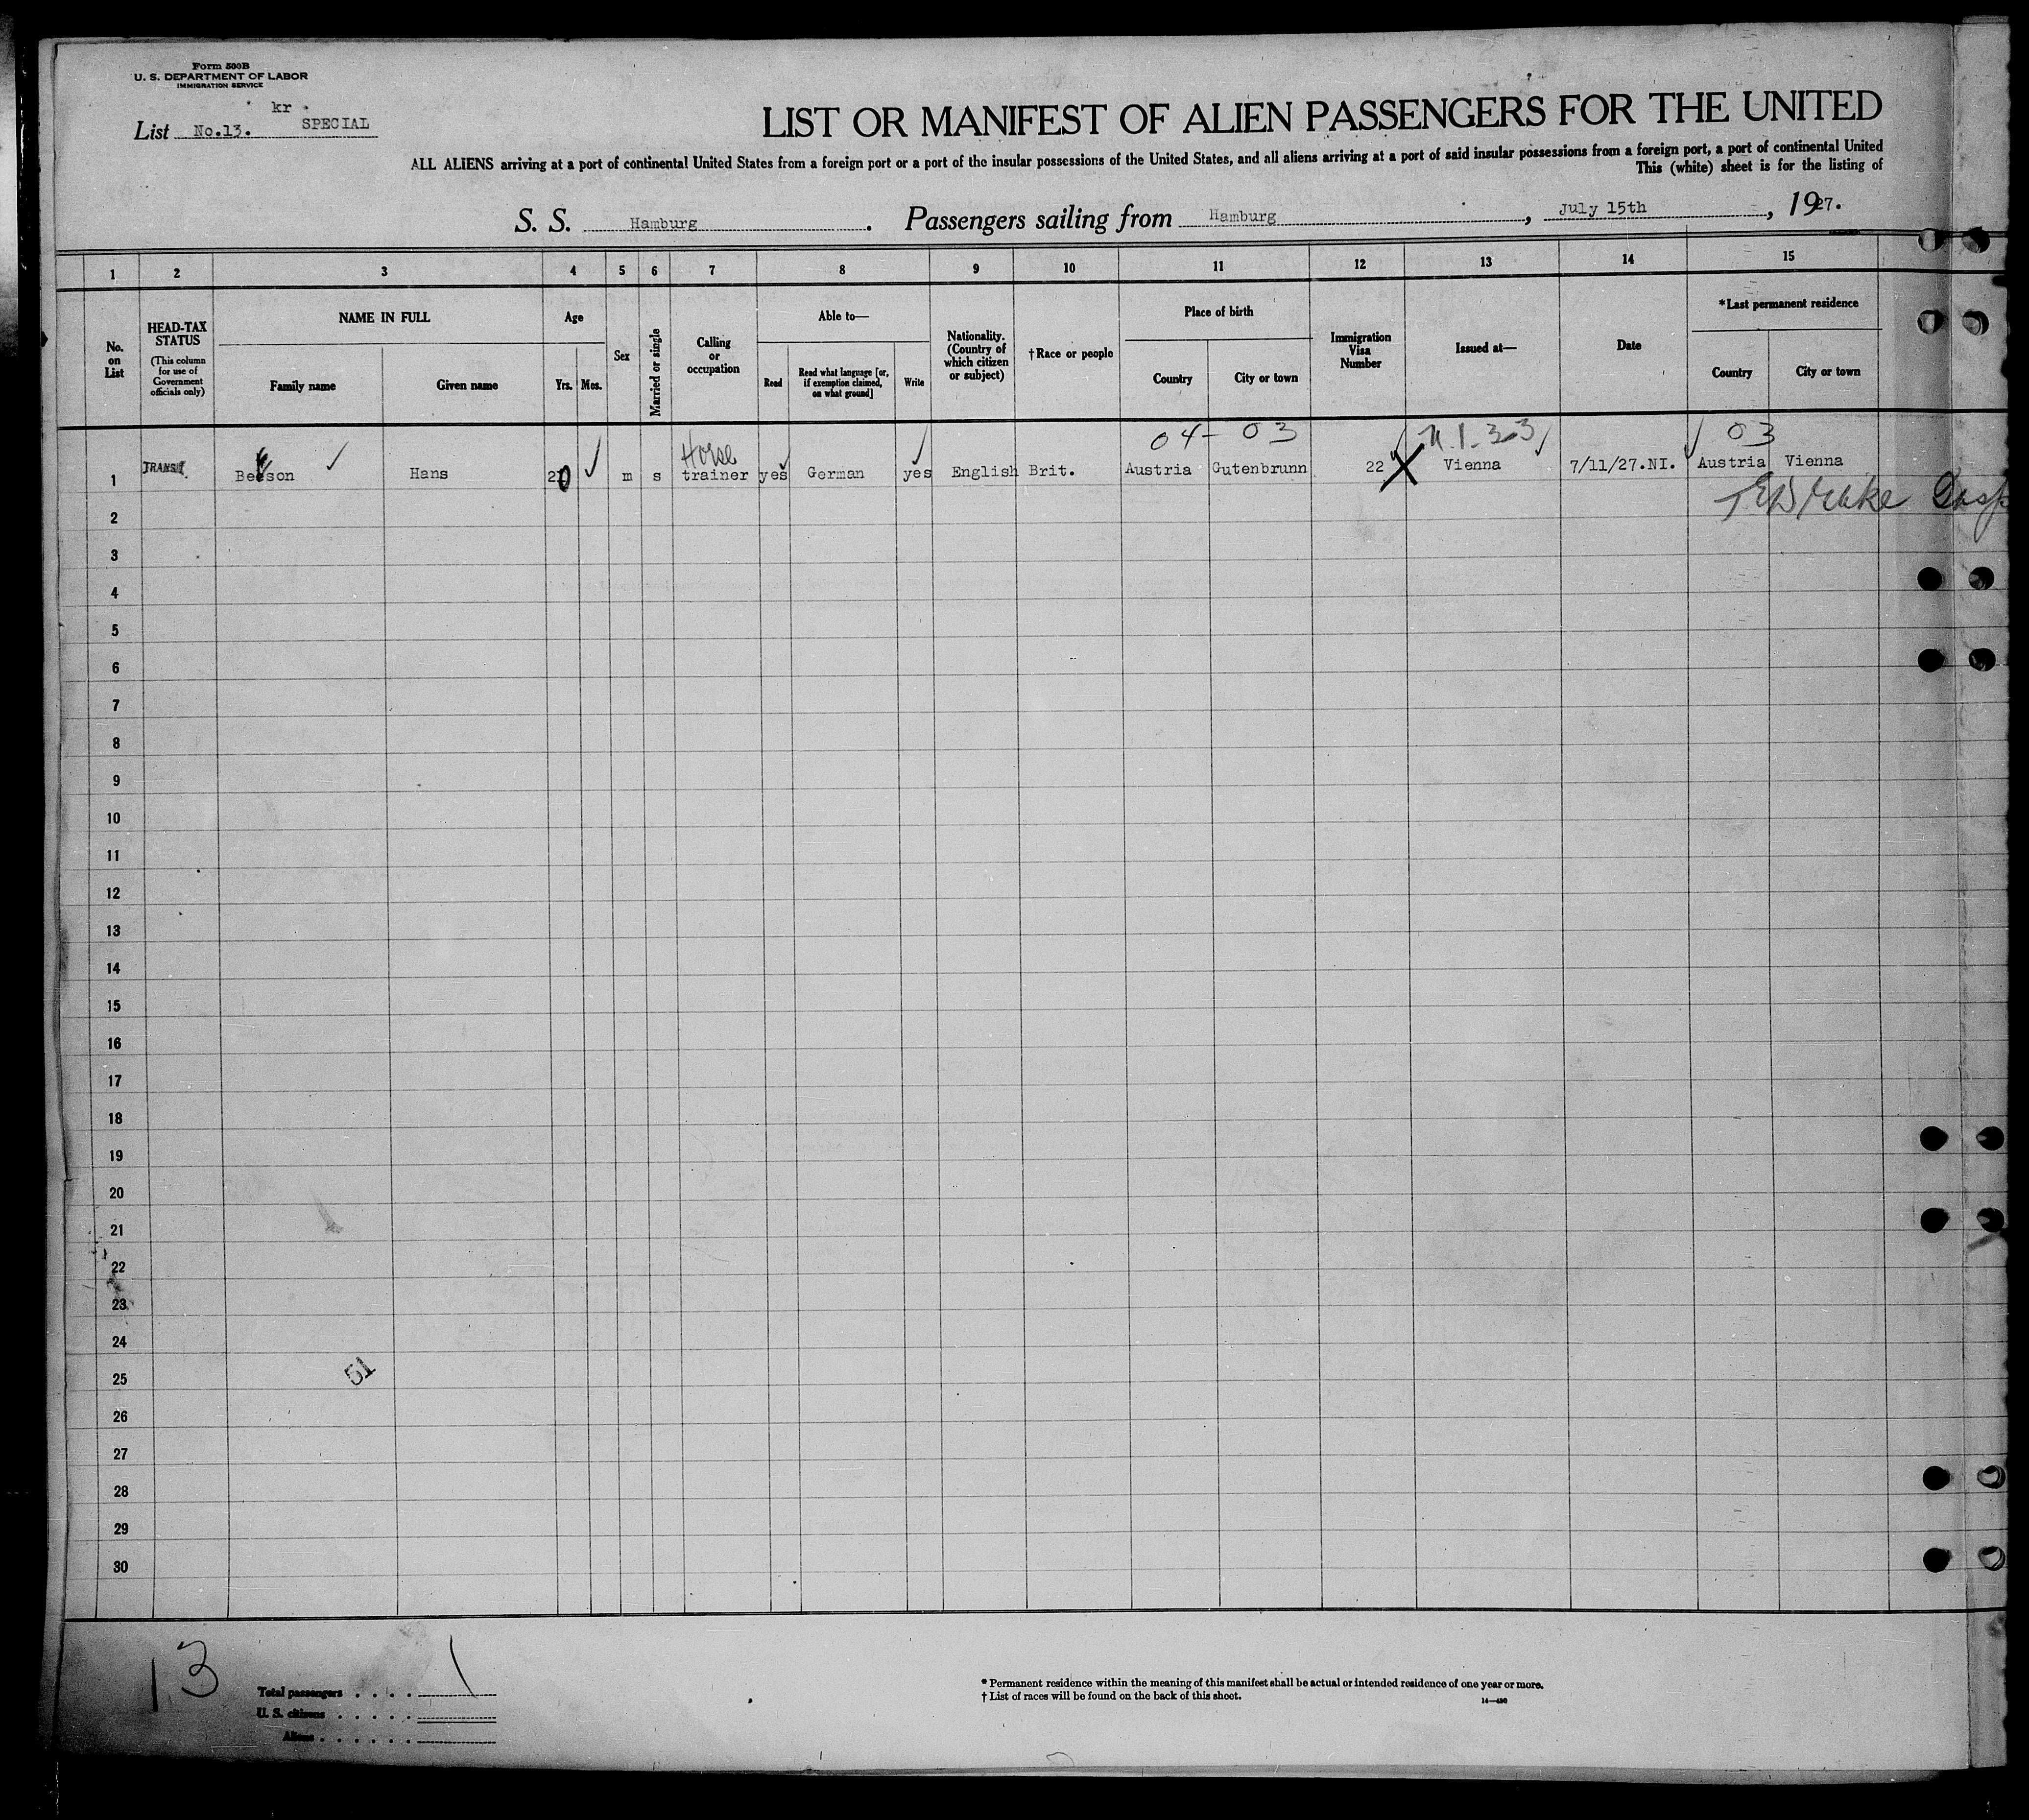 Form 500B
U. S. DEPARTMENT OF LABOR
IMMIGRATION SERVICE
kr
List No.13. SPECIAL
LIST OR MANIFEST OF ALIEN PASSENGERS FOR THE UNITED
ALL ALIENS arriving at a port of continental United States from a foreign port or a port of the insular possessions of the United States, and all aliens arriving at a port of said insular possessions from a foreign port, a port of continental United
This (white) sheet is for the listing of
S. S. Hamburg. Passengers sailing from Hamburg, July 15th, 1927.
1 2 3 4 5 6 7 8 9 10 11 12 13 14 15
No. on List
HEAD-TAX STATUS
(This column for use of Government officials only)
NAME IN FULL
Family name Given name
Age
Yrs. Mos.
Sex
Married or single
Calling or occupation
Able to—
Read
Read what language [or, if exemption claimed, on what ground]
Write
Nationality. (Country of which citizen or subject)
† Race or people
Place of birth
Country City or town
Immigration Visa Number
Issued at—
Date
*Last permanent residence
Country City or town
Horse 04- 03 03
1 TRANSIT Hans m s trainer yes German yes English Brit. Austria Gutenbrunn 22 X Vienna 7/11/27.NI. Austria Vienna
2
3
4
5
6
7
8
9
10
11
12
13
14
15
16
17
18
19
20
21
22
23
24
25
51
26
27
28
29
30
13
Total passengers . . . . 1
U. S. citizens . . . . .
Aliens . . . . . .
* Permanent residence within the meaning of this manifest shall be actual or intended residence of one year or more.
† List of races will be found on the back of this sheet.
14—430